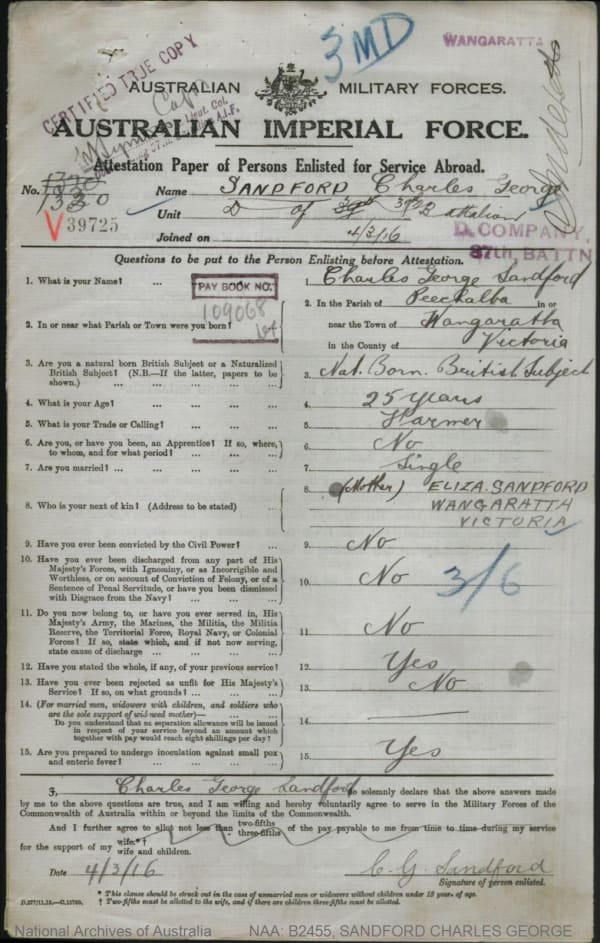 3 MD
WANGARATTA
CERTIFIED TRUE COPY
Lieut. Col.
A.I.F.
AUSTRALIAN MILITARY FORCES.
AUSTRALIAN IMPERIAL FORCE.
Attestation Paper of Persons Enlisted for Service Abroad.
No. 1330 Name SANDFORD Charles George
V 39725 Unit D of 37th Battalion
Joined on 4/3/16
D. COMPANY,
37th, BATTN
Questions to be put to the Person Enlisting before Attestation.
1. What is your Name? ... 1. Charles George Sandford
PAY BOOK NO.
109068
2. In or near what Parish or Town were you born? 2. In the Parish of Peechalba in or
near the Town of Wangaratta
in the County of Victoria
3. Are you a natural born British Subject or a Naturalized
British Subject? (N.B.—If the latter, papers to be
shown.) ... ... ... ... 3. Nat. Born. British Subject
4. What is your Age? ... ... ... 4. 25 years
5. What is your Trade or Calling? ... ... ... 5. Farmer
6. Are you, or have you been, an Apprentice? If so, where,
to whom, and for what period? ... ... ... 6. No
7. Are you married? ... ... ... ... 7. Single
8. Who is your next of kin? (Address to be stated) ... 8. (Mother) ELIZA. SANDFORD
WANGARATTA
VICTORIA
9. Have you ever been convicted by the Civil Power? ... 9. No
10. Have you ever been discharged from any part of His
Majesty's Forces, with Ignominy, or as Incorrigible and
Worthless, or on account of Conviction of Felony, or of a
Sentence of Penal Servitude, or have you been dismissed
with Disgrace from the Navy? ... ... ... 10. No 3/6
11. Do you now belong to, or have you ever served in, His
Majesty's Army, the Marines, the Militia, the Militia
Reserve, the Territorial Force, Royal Navy, or Colonial
Forces? If so, state which, and if not now serving,
state cause of discharge ... ... ... 11. No
12. Have you stated the whole, if any, of your previous service? 12. Yes
13. Have you ever been rejected as unfit for His Majesty's
Service? If so, on what grounds? ... ... ... 13. No
14. (For married men, widowers with children, and soldiers who
are the sole support of widowed mother)—
Do you understand that no separation allowance will be issued
in respect of your service beyond an amount which
together with pay would reach eight shillings per day? 14.
15. Are you prepared to undergo inoculation against small pox
and enteric fever? ... ... ... ... 15. Yes
I, Charles George Sandford do solemnly declare that the above answers made
by me to the above questions are true, and I am willing and hereby voluntarily agree to serve in the Military Forces of the
Commonwealth of Australia within or beyond the limits of the Commonwealth.
And I further agree to allot not less than two-fifths three-fifths of the pay payable to me from time to time during my service
for the support of my wife.*† wife and children.
Date 4/3/16 C. G. Sandford
Signature of person enlisted.
* This clause should be struck out in the case of unmarried men or widowers without children under 18 years of age.
† Two-fifths must be allotted to the wife, and if there are children three-fifths must be allotted.
National Archives of Australia NAA: B2455, SANDFORD CHARLES GEORGE